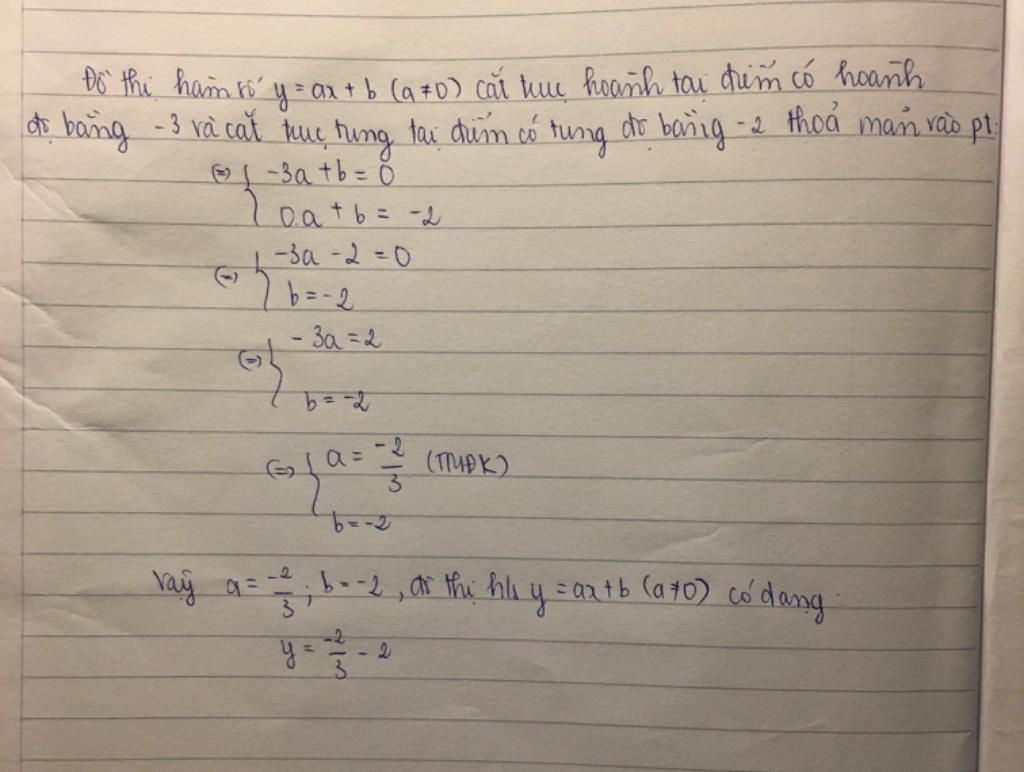 Đồ thị hàm số y = ax + b (a ≠ 0) cắt trục hoành tại điểm có hoành
độ bằng -3 và cắt trục tung tại điểm có tung độ bằng -2 thoả mãn vào pt:
(=) { -3a + b = 0
0.a + b = -2
(=) { -3a - 2 = 0
b = -2
(=) { -3a = 2
b = -2
(=) { a = -2/3 (TMĐK)
b = -2
Vậy a = -2/3 ; b = -2 , đồ thị hs y = ax + b (a ≠ 0) có dạng:
y = -2/3 - 2